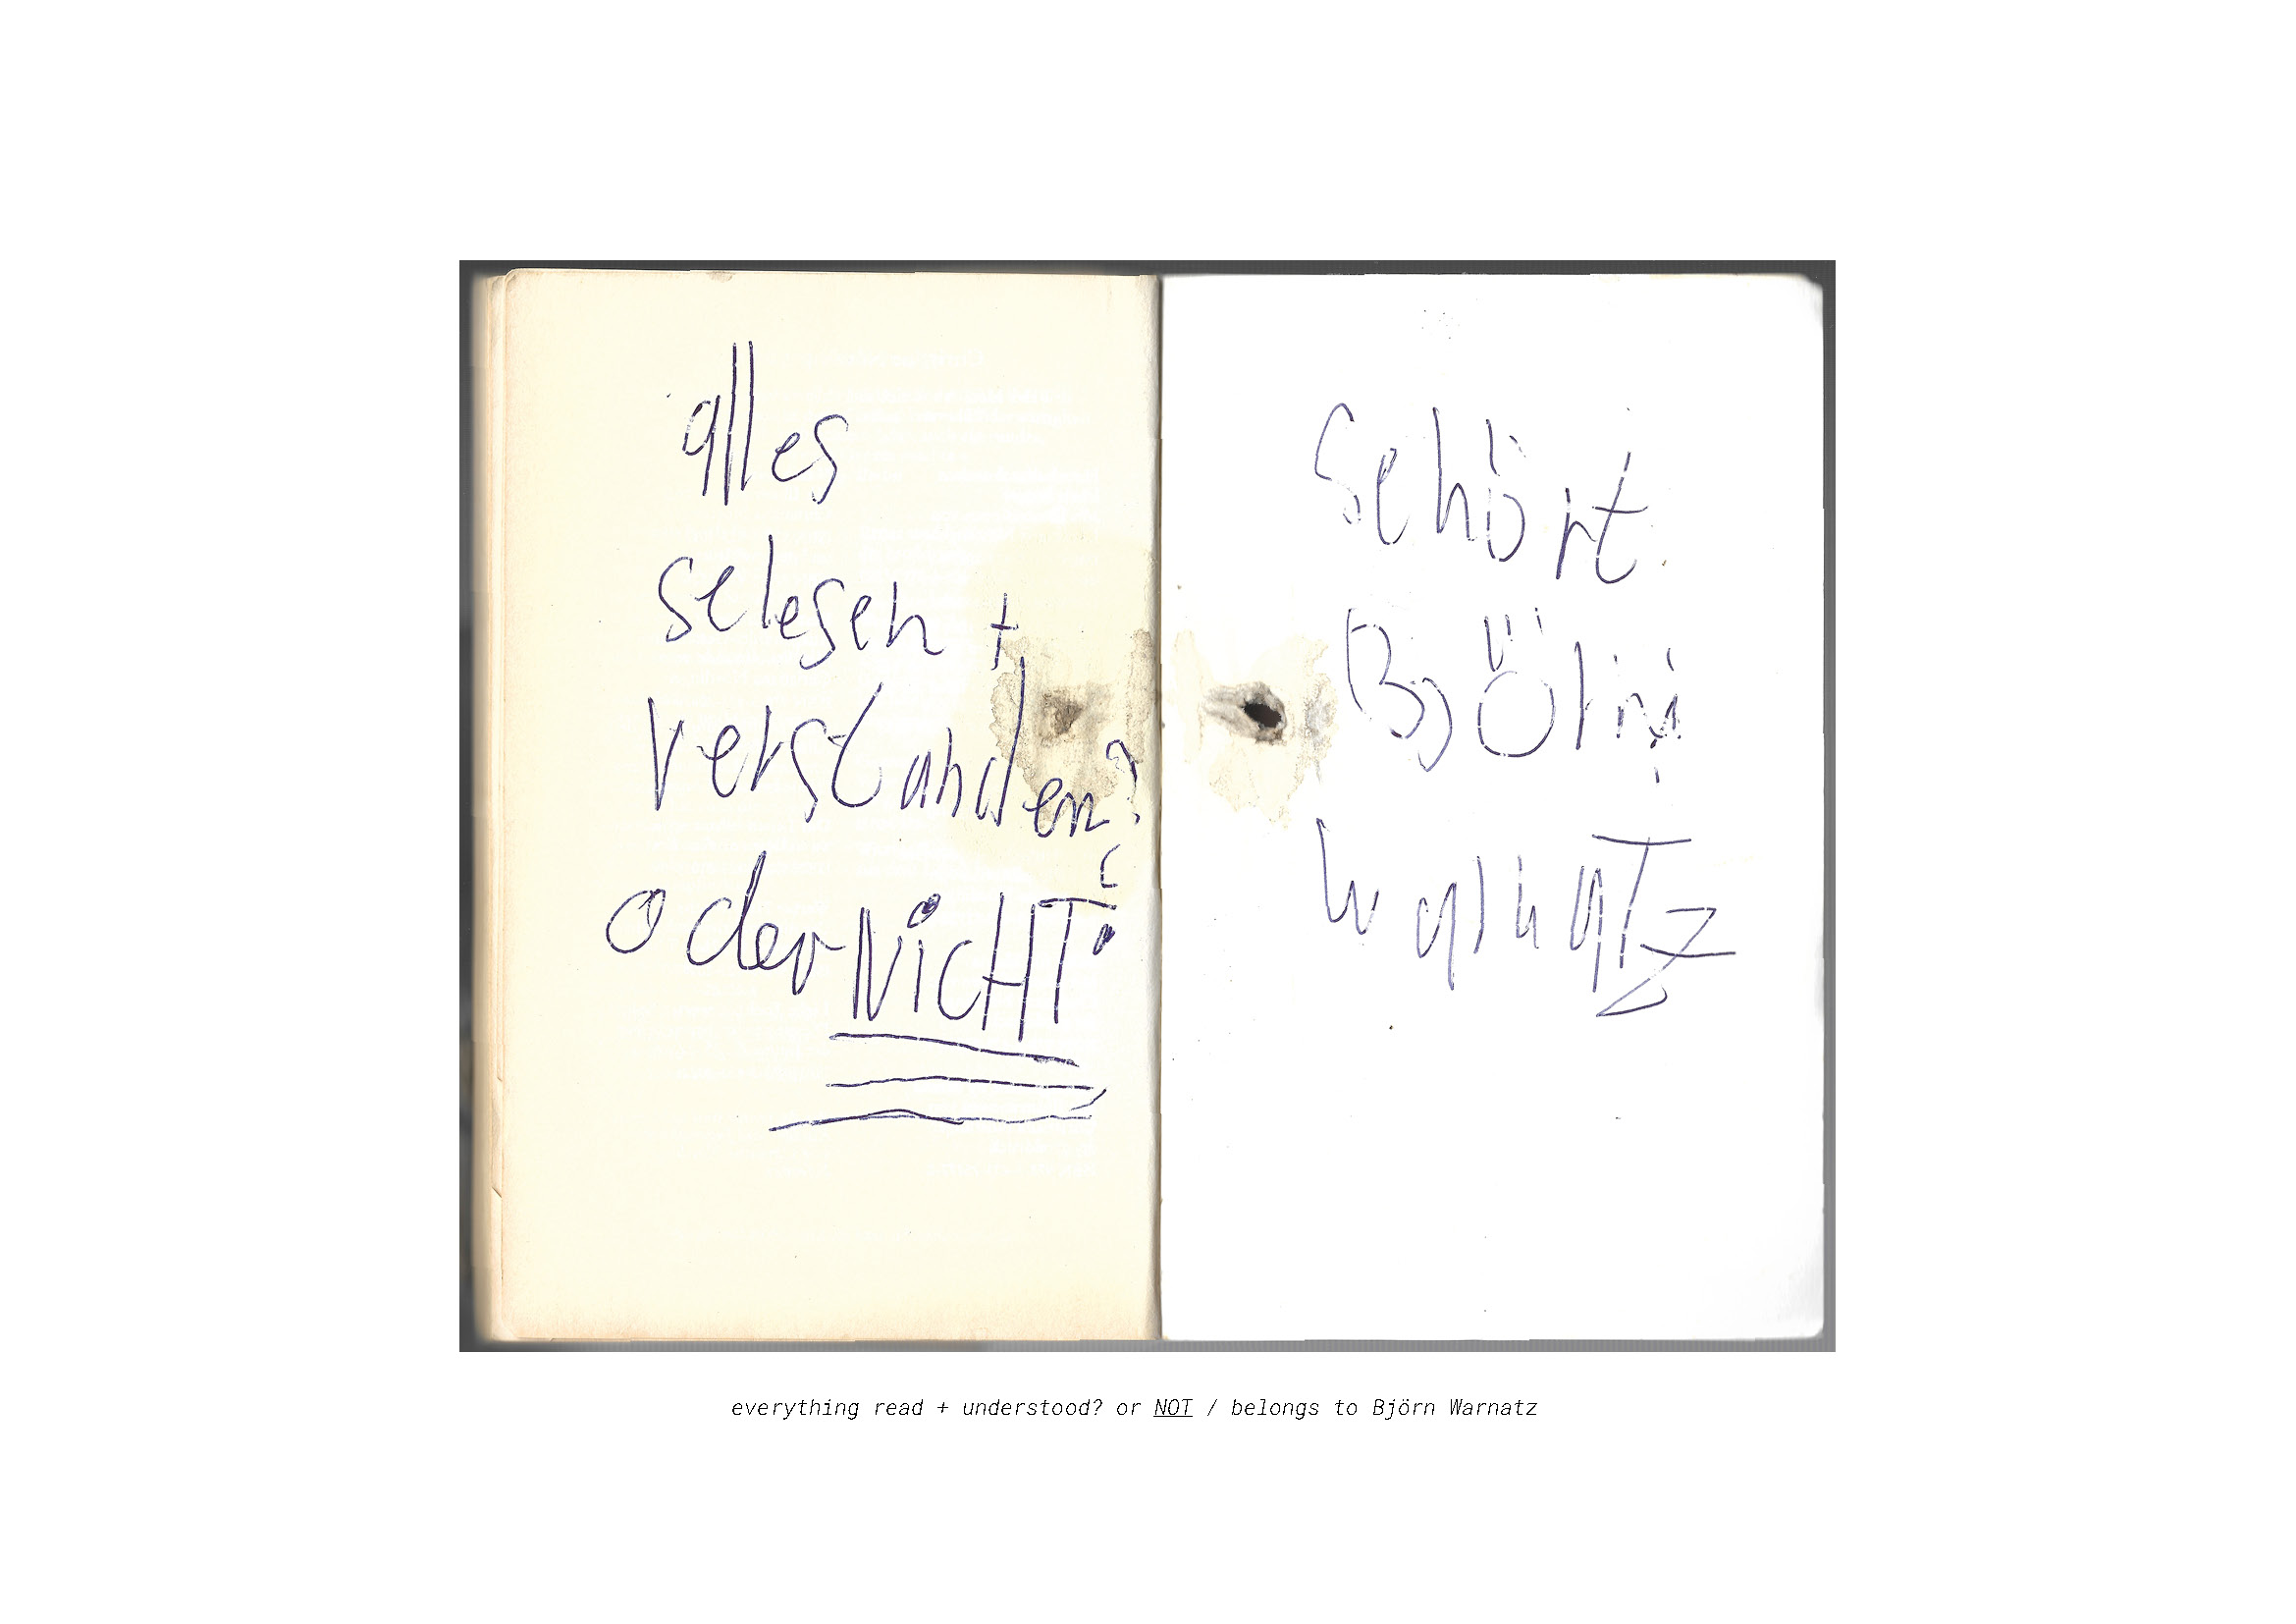 alles
gelesen +
verstanden?
oder NiCHT?
gehört
BjÖrn
WarnaTz
everything read + understood? or NOT / belongs to Björn Warnatz